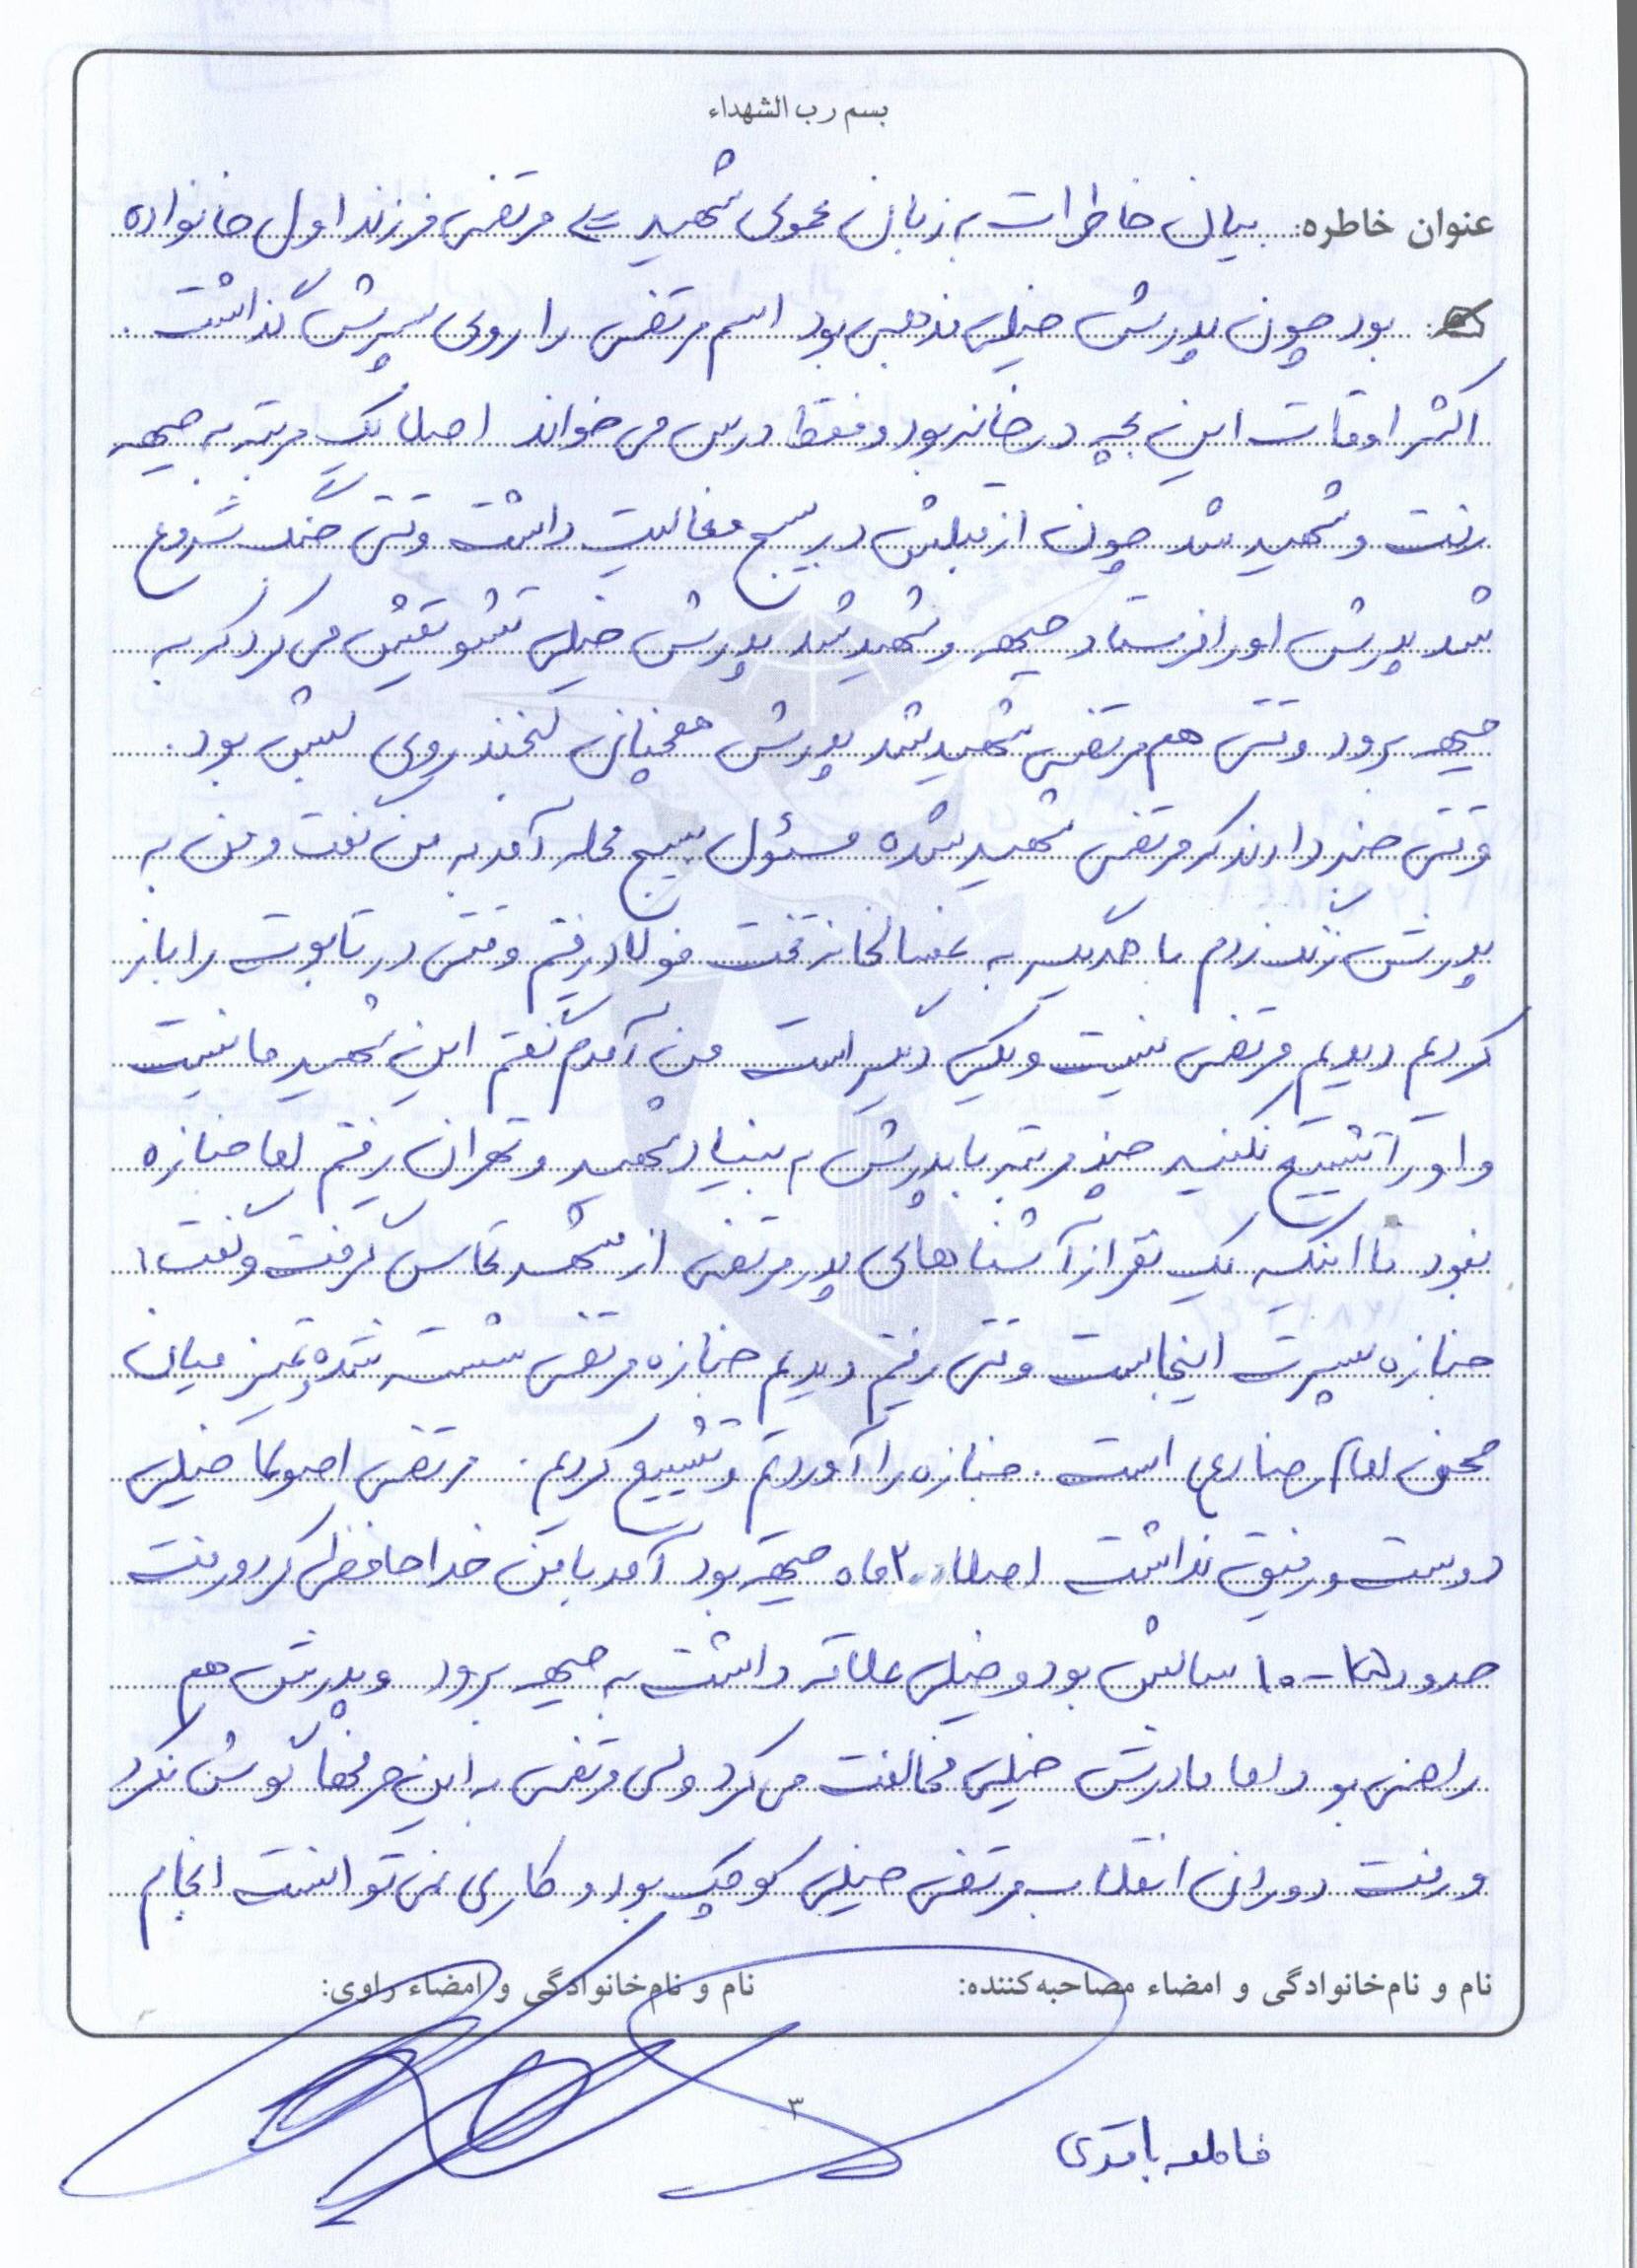 بسم رب الشهداء
عنوان خاطره: بیان خاطرات به زبان عموی شهید مرتضی فرزند اول خانواده
بود چون پدرش خیلی مذهبی بود اسم مرتضی را روی پسرش گذاشت.
اکثر اوقات این بچه در خانه بود و فقط درس می خواند اصلا یک مرتبه به جبهه
رفت و شهید شد چون از قبلش در بسیج فعالیت داشت وقتی جنگ شروع
شد پدرش او را فرستاد جبهه و شهید شد پدرش خیلی تشویقش می کرد که به
جبهه برود وقتی هم مرتضی شهید شد پدرش همچنان لبخند روی لبش بود.
وقتی خبر دادند که مرتضی شهید شده مسئول بسیج محله آمد به من گفت و من به
پدرش زنگ زدم با همدیگر به غسالخانه تخت فولاد رفتیم وقتی در تابوت را باز
کردیم دیدیم مرتضی نیست و یکی دیگر است من آمدم گفتم این شهید ما نیست
و او را تشییع نکنید چند مرتبه با پدرش به بنیاد شهید و تهران رفتیم اما جنازه
نبود تا اینکه یک نفر از آشناهای پدر مرتضی از مشهد تماس گرفت و گفت:
جنازه پسرت اینجاست وقتی رفتیم دیدیم جنازه مرتضی شسته شده تمیز میان
صحن امام رضا (ع) است. جنازه را آوردیم و تشییع کردیم. مرتضی اصولا خیلی
دوست و رفیق نداشت اصلا ۳ ماه جبهه بود آمد با من خداحافظی کرد و رفت
حدود ۱۵-۱۰ سالش بود و خیلی علاقه داشت به جبهه برود و پدرش هم
راضی بود اما مادرش خیلی مخالفت می کرد ولی مرتضی به این حرفها گوش نکرد
و رفت دوران انقلاب مرتضی خیلی کوچک بود و کاری نمی توانست انجام
نام و نام‌خانوادگی و امضاء مصاحبه‌کننده: نام و نام‌خانوادگی و امضاء راوی:
فاطمه باقری
۳